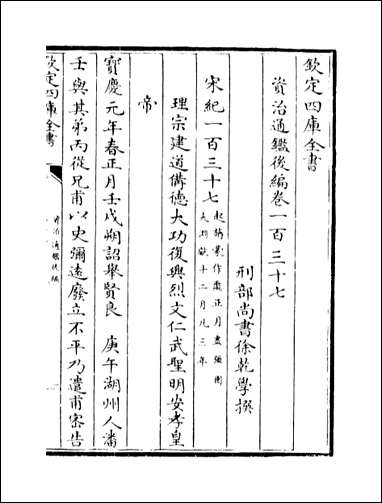 欽定四庫全書
資治通鑑後編卷一百三十七
刑部尚書徐乾學撰
宋紀一百三十七起旃蒙作噩正月盡强圉大淵獻十二月凡三年
理宗建道備德大功復興烈文仁武聖明安孝皇
帝
寶慶元年春正月壬戌朔詔舉賢良 庚午湖州人潘
壬與其弟丙從兄甫以史彌遠廢立不平乃遣甫密告
欽定四庫全書
資治通鑑後編
一